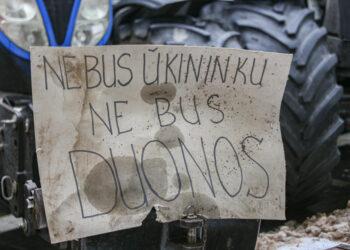 NEBUS ŪKININKU
NE BUS
DUONOS